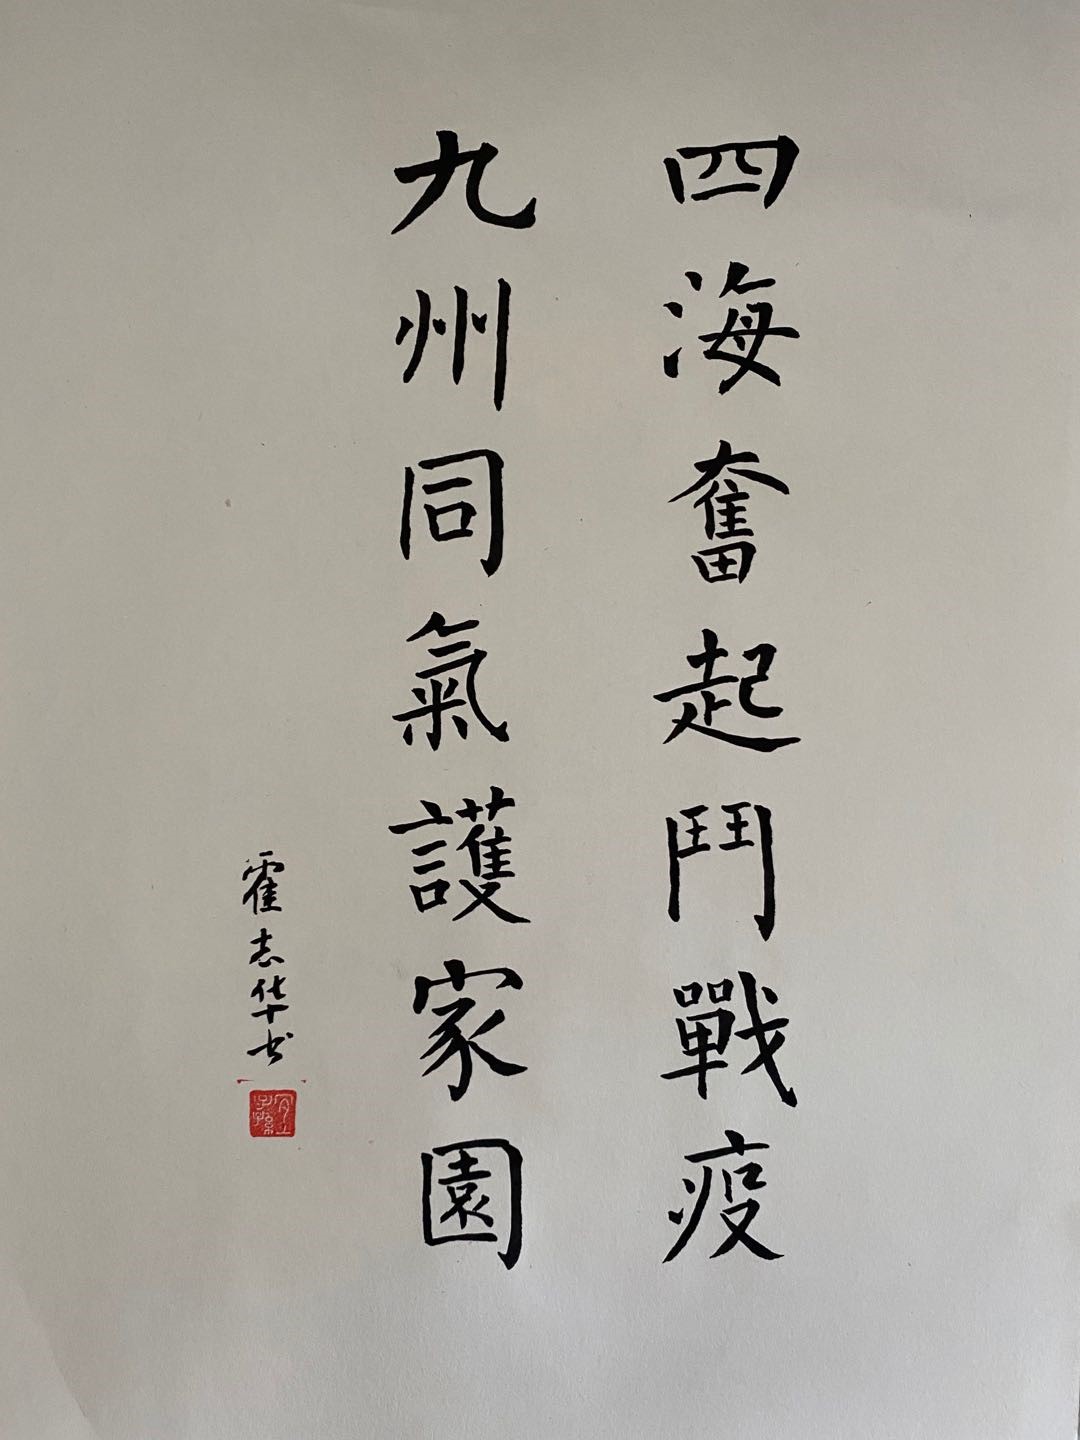 四海奮起鬥戰疫
九州同氣護家園
霍志华书